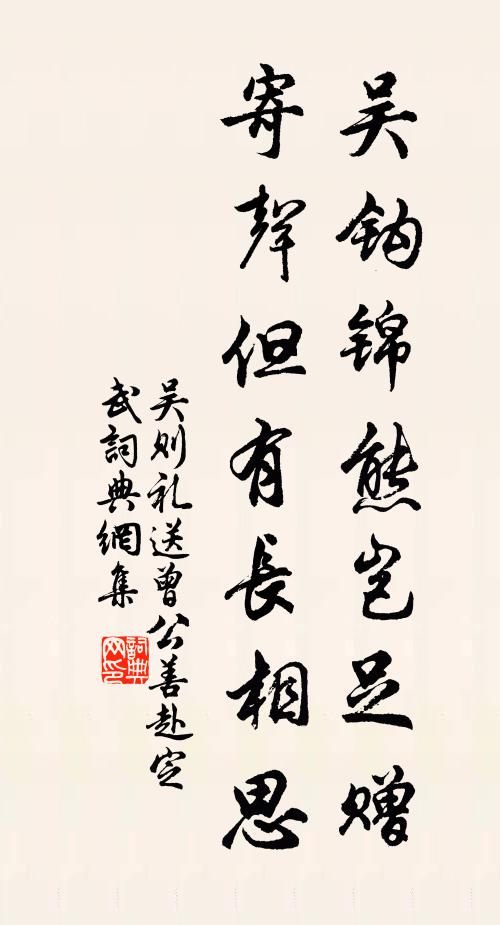 吴钩锦熊岂足赠
寄聲但有長相思
吴则礼送曾公善赴定
武詞典網集
詞典网印